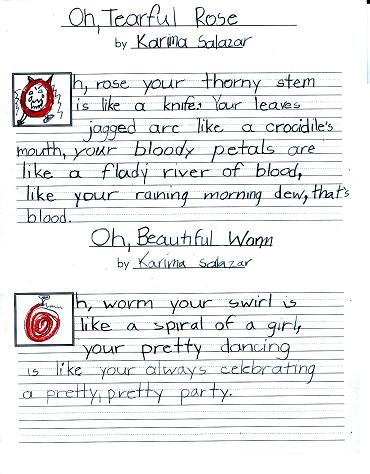 Oh, Tearful Rose
by Karima Salazar
Oh, rose your thorny stem
is like a knife. Your leaves
jagged are like a crocidile's
mouth, your bloody petals are
like a flady river of blood,
like your raining morning dew, that's
blood.
Oh, Beautiful Worm
by Karima Salazar
Oh, worm your swirl is
like a spiral of a girl,
your pretty dancing
is like your always celebrating
a pretty, pretty party.